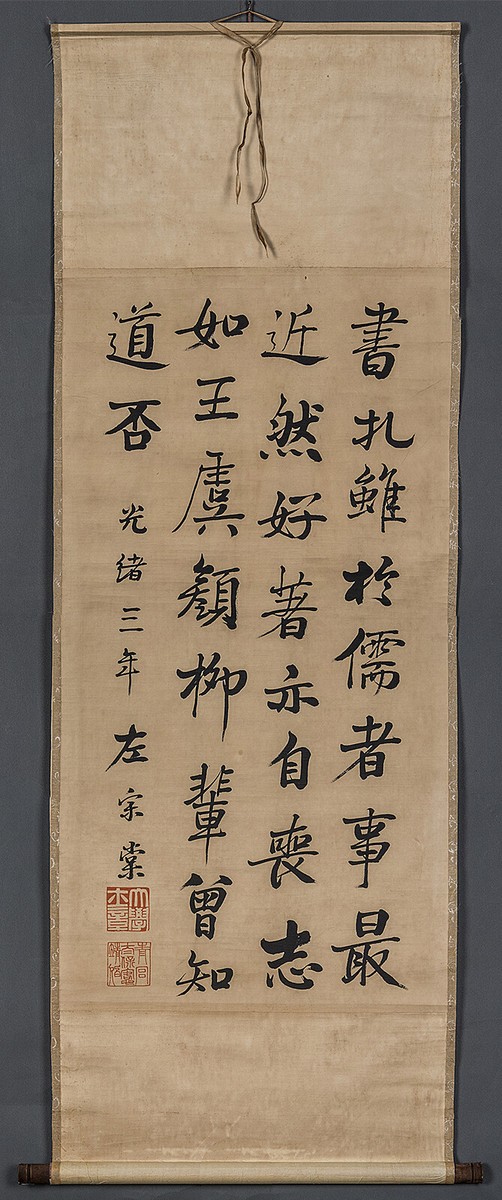 書扎雖於儒者事最
近然好著亦自喪志
如王虞顏柳輩曾知
道否 光緒三年 左宗棠
大學士章